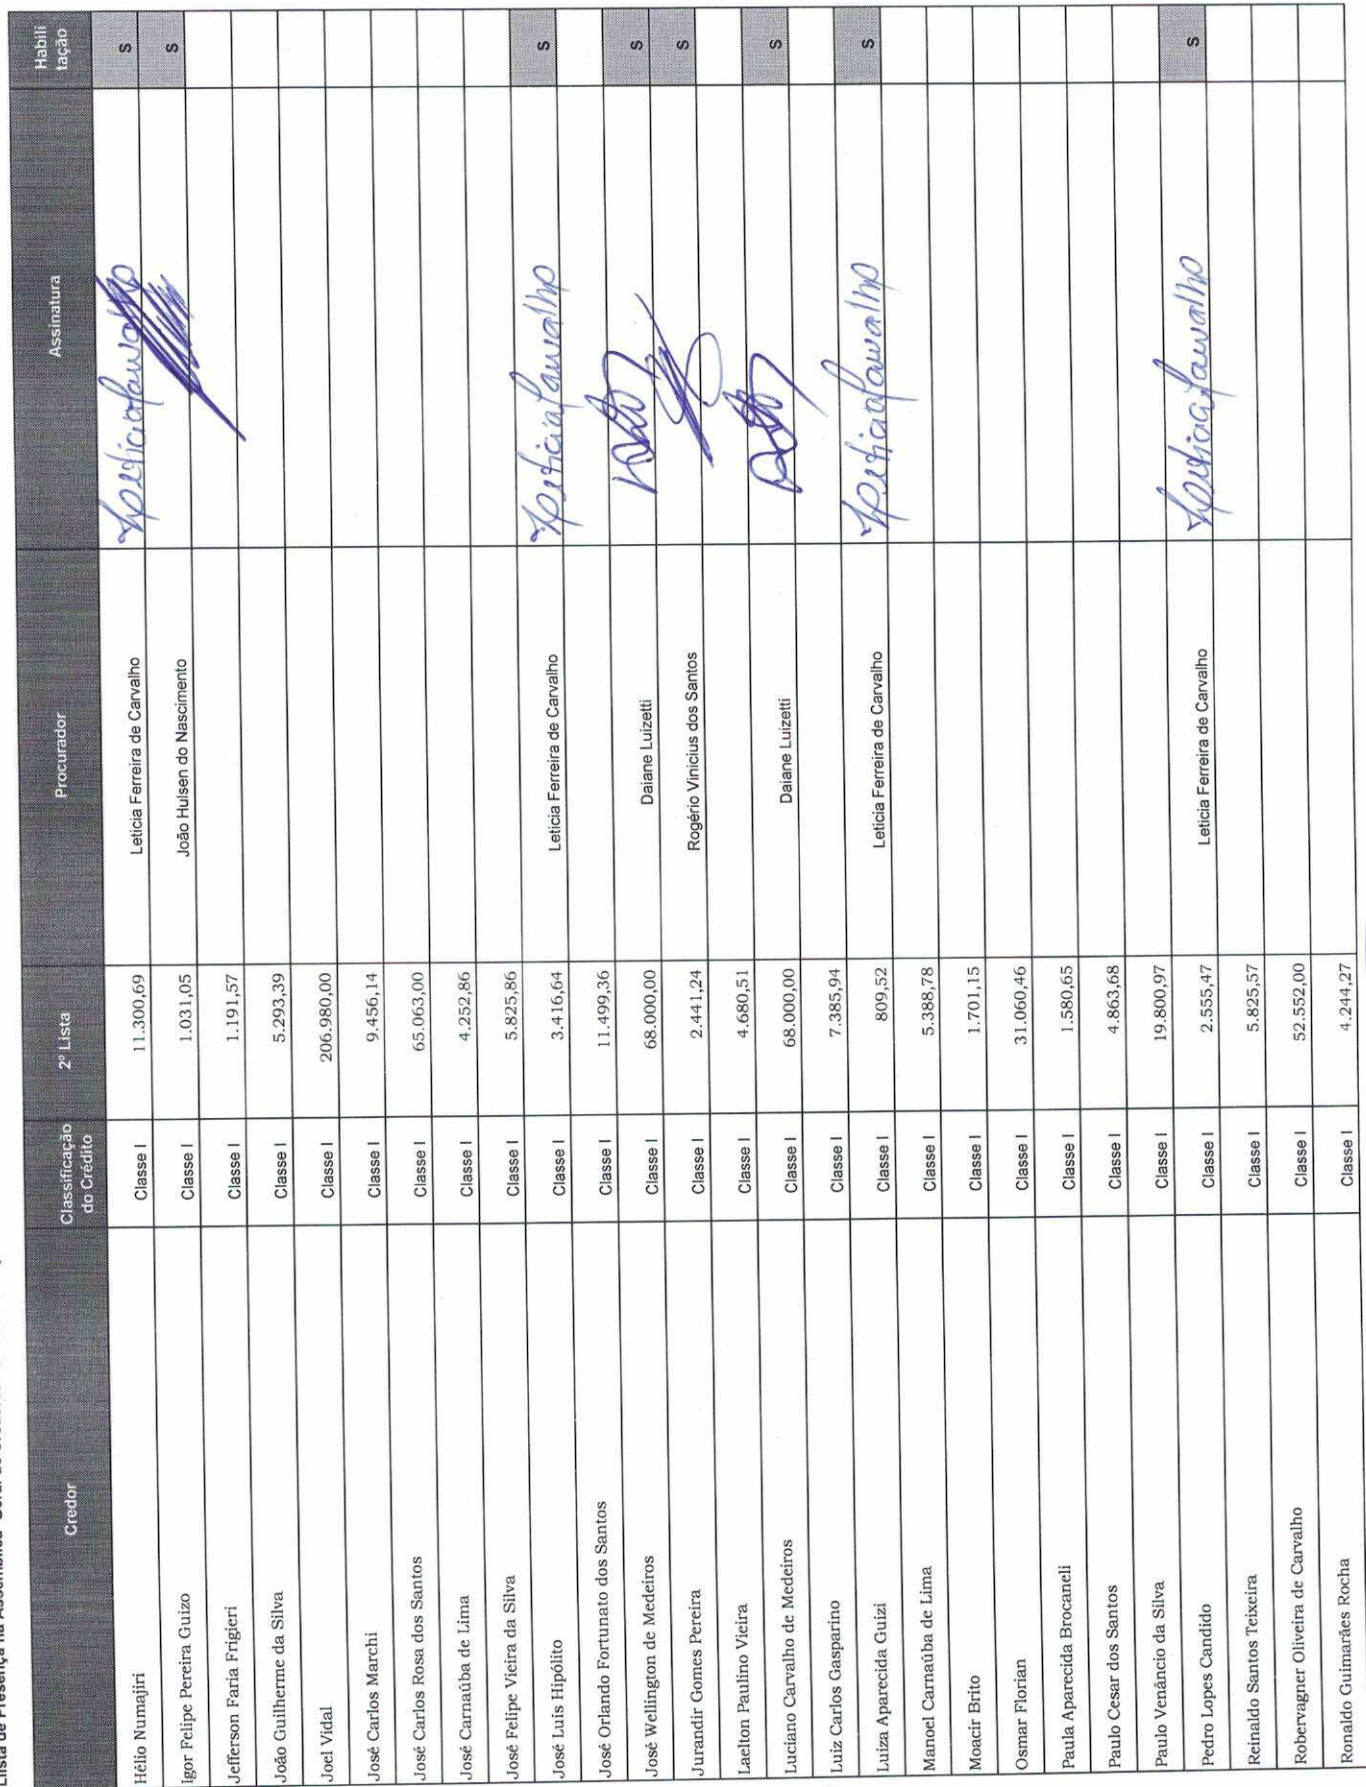 Lista de Presença na Assembleia
Credor Classificação do Crédito 2º Lista Procurador Assinatura Habilitação
Hélio Numajiri Classe I 11.300,69 Leticia Ferreira de Carvalho S
Igor Felipe Pereira Guizo Classe I 1.031,05 João Hulsen do Nascimento S
Jefferson Faria Frigieri Classe I 1.191,57
João Guilherme da Silva Classe I 5.293,39
Joel Vidal Classe I 206.980,00
José Carlos Marchi Classe I 9.456,14
José Carlos Rosa dos Santos Classe I 65.063,00
José Carnaúba de Lima Classe I 4.252,86
José Felipe Vieira da Silva Classe I 5.825,86
José Luis Hipólito Classe I 3.416,64 Leticia Ferreira de Carvalho S
José Orlando Fortunato dos Santos Classe I 11.499,36
José Wellington de Medeiros Classe I 68.000,00 Daiane Luizetti S
Jurandir Gomes Pereira Classe I 2.441,24 Rogério Vinicius dos Santos S
Laelton Paulino Vieira Classe I 4.680,51
Luciano Carvalho de Medeiros Classe I 68.000,00 Daiane Luizetti S
Luiz Carlos Gasparino Classe I 7.385,94
Luiza Aparecida Guizi Classe I 809,52 Leticia Ferreira de Carvalho S
Manoel Carnaúba de Lima Classe I 5.388,78
Moacir Brito Classe I 1.701,15
Osmar Florian Classe I 31.060,46
Paula Aparecida Brocaneli Classe I 1.580,65
Paulo Cesar dos Santos Classe I 4.863,68
Paulo Venâncio da Silva Classe I 19.800,97
Pedro Lopes Candido Classe I 2.555,47 Leticia Ferreira de Carvalho S
Reinaldo Santos Teixeira Classe I 5.825,57
Robervagner Oliveira de Carvalho Classe I 52.552,00
Ronaldo Guimarães Rocha Classe I 4.244,27